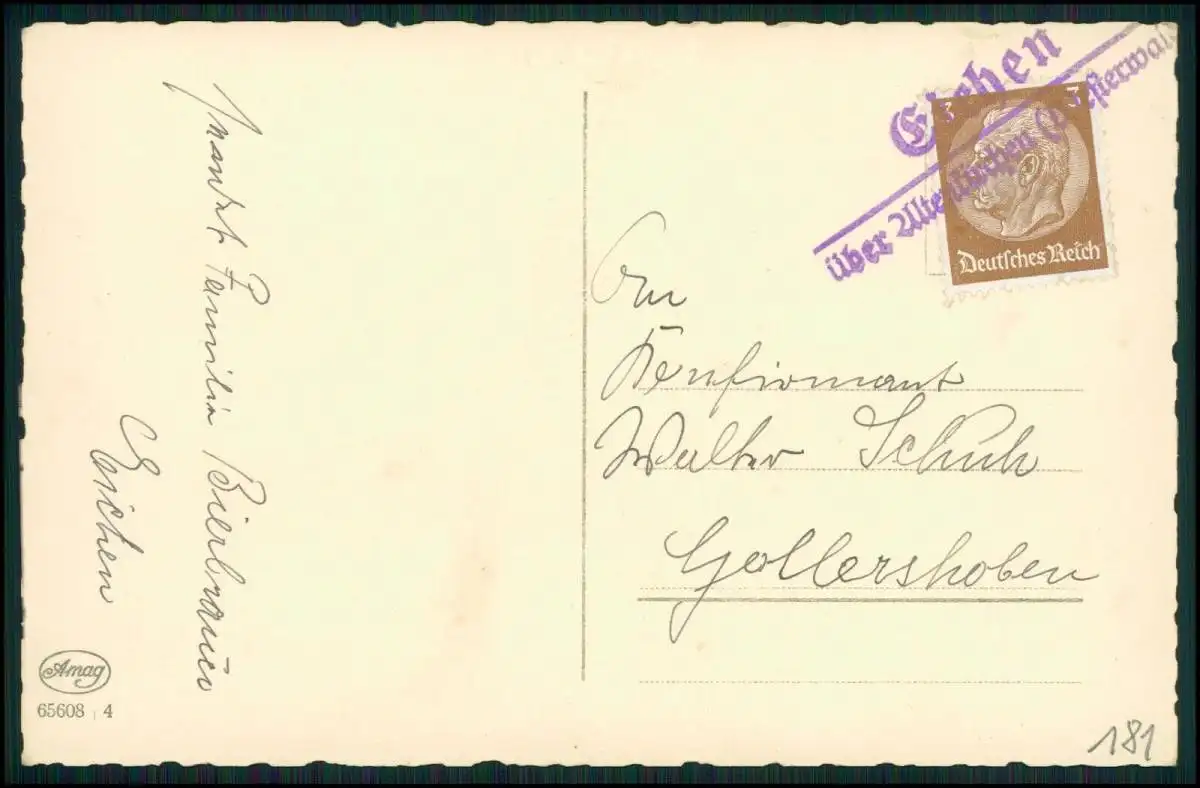 Eichen
über Altenkirchen (Westerwald
3 3
Deutsches Reich
An
Konfirmant
Walter Schuh
Gollershoben
Familie Bierbrauer
Eichen
Amag
65608 4
181